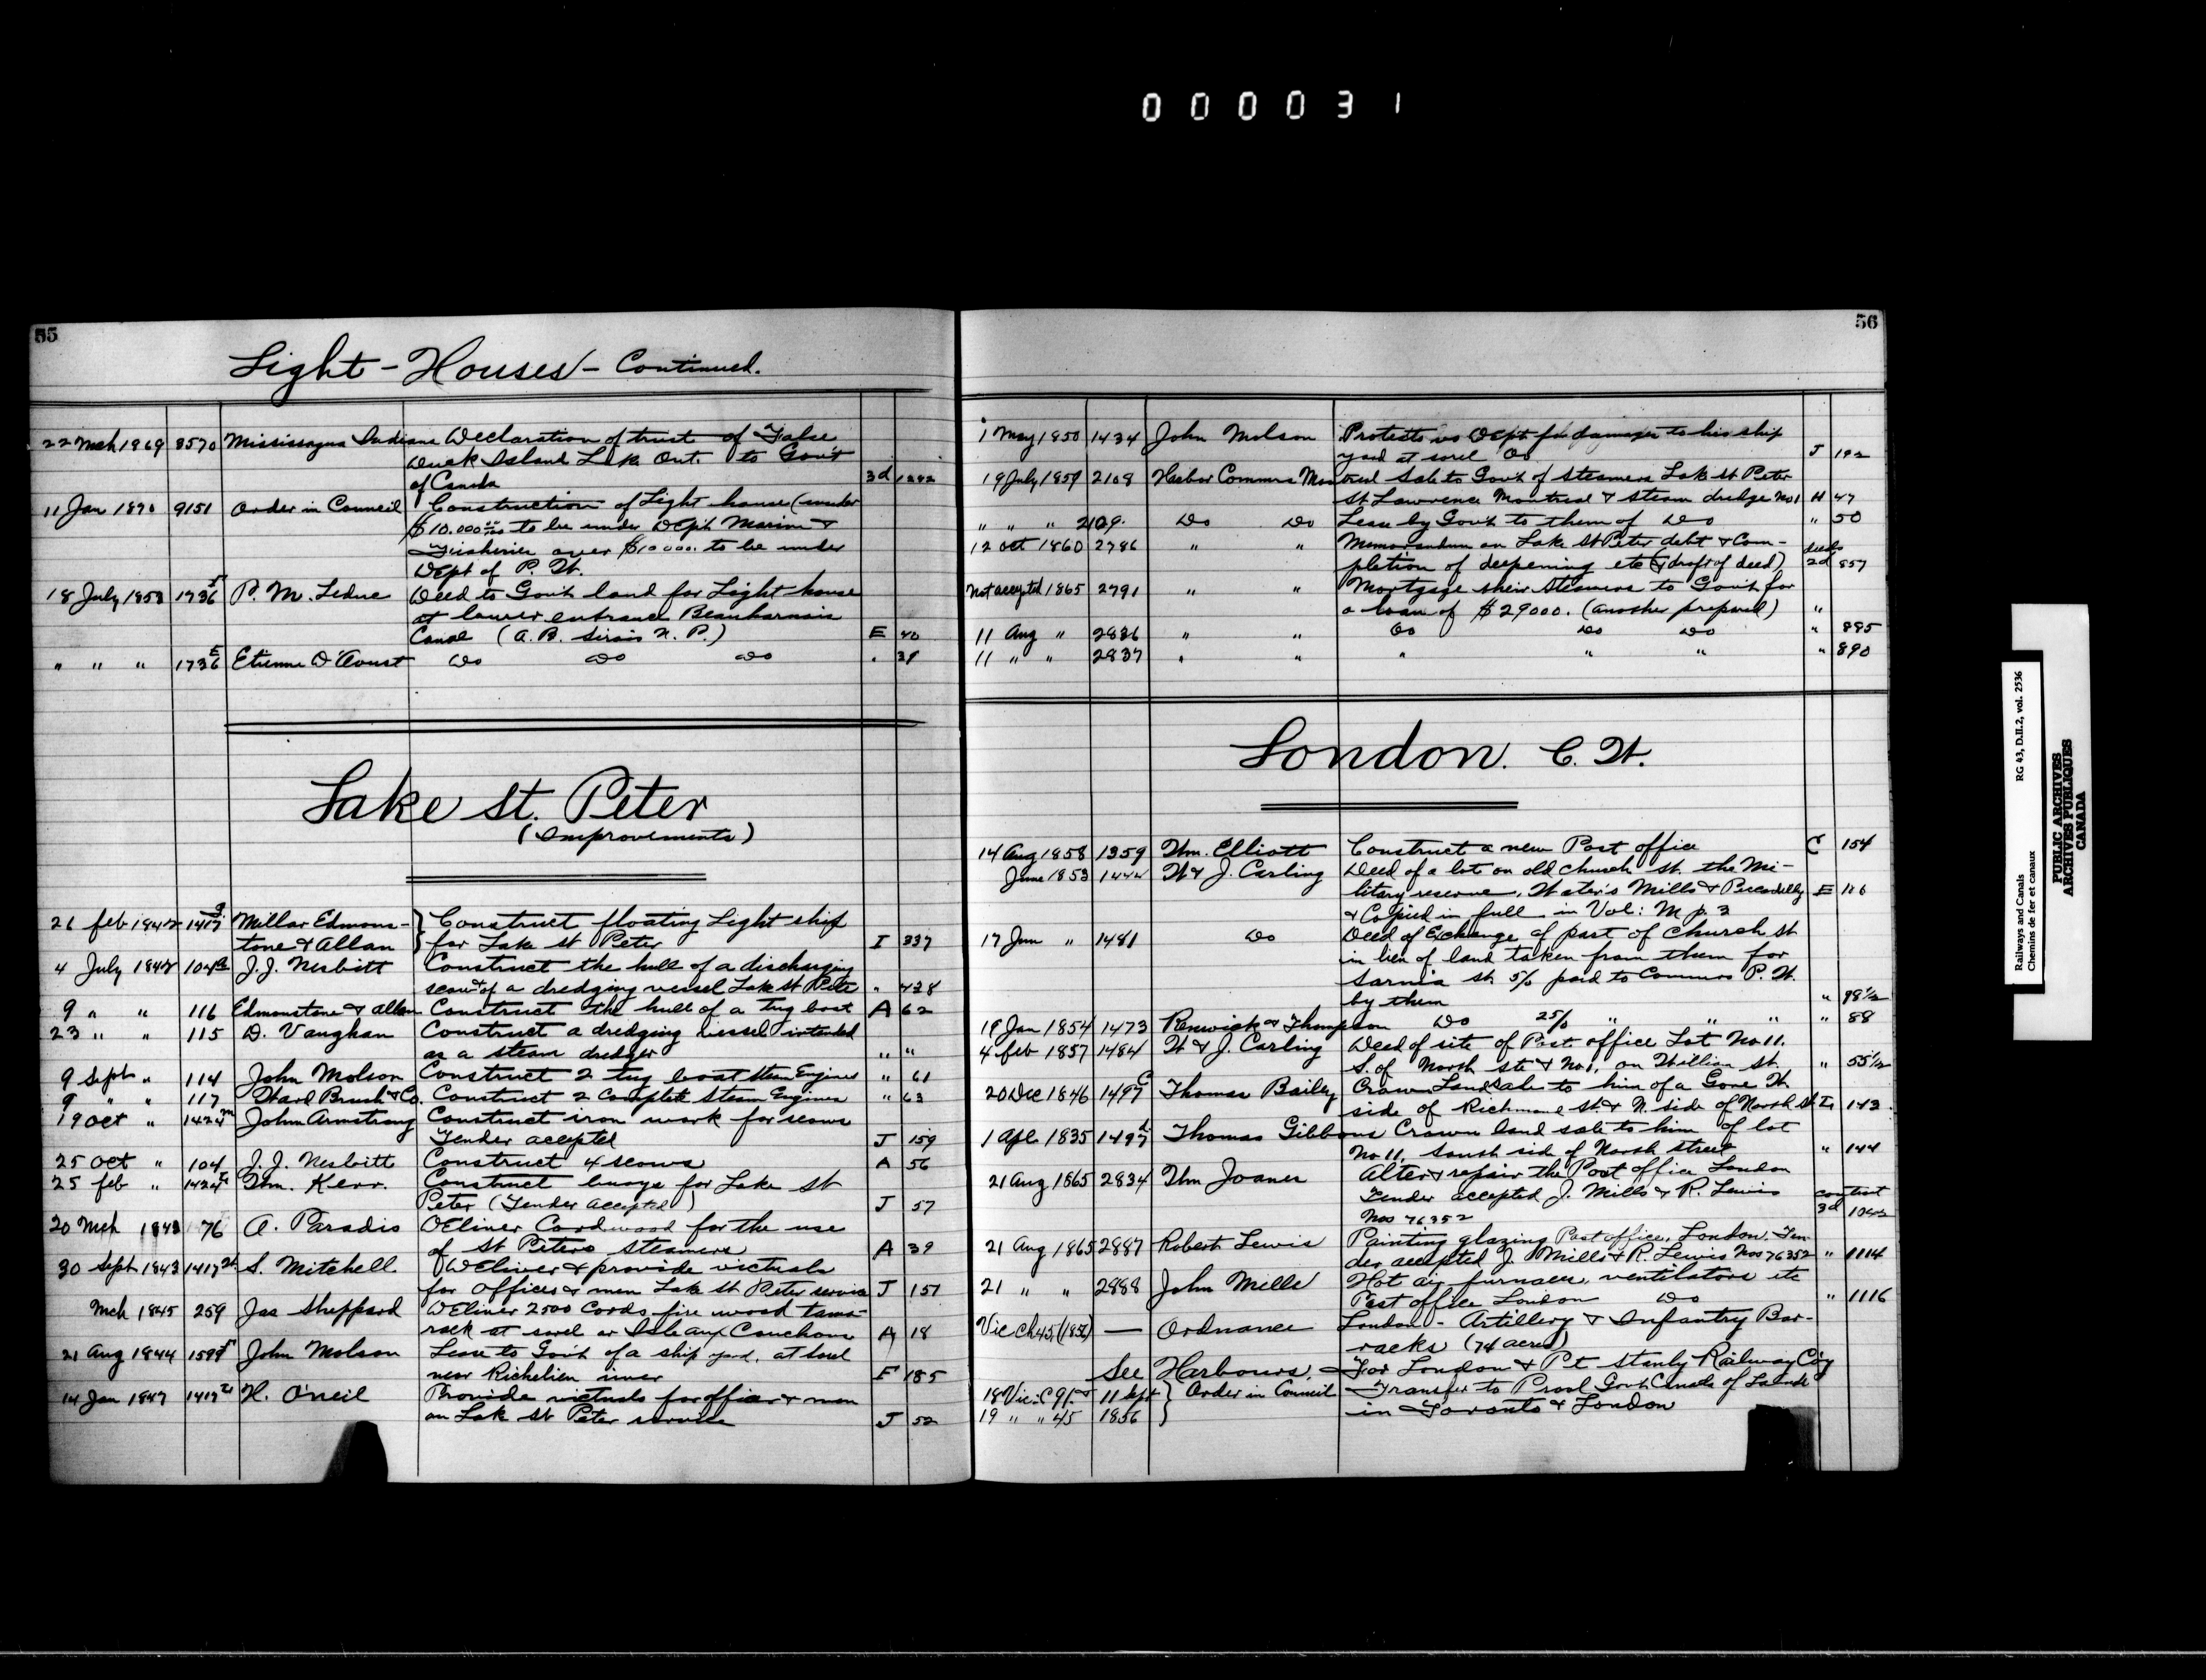 000031
55
Light-Houses - Continued.
22 Mch 1869 8570 Mississagua Indians Declaration of trust of False
Duck Island Lk. Ont. to Gov't
of Canada 3d 1242
11 Jan 1870 9151 Order in Council Construction of Light house (under
$10.000 to be under Dep't Marine &
Fisheries over $10000. to be under
Dept of P. W.
18 July 1853 1736 P. M. Leduc Deed to Gov't land for Light house
at lower entrance Beauharnois
Canal (A. B. Sirois N. P.) E 40
" " " 1736 E Etienne D'Aoust Do Do Do . 38
Lake St. Peter
(Improvements)
21 feb 1842 1417 Millar Edmons- } Construct floating Light ship
tone & Allan } for Lake St Peter I 337
4 July 1842 104 J. J. Nesbitt Construct the hull of a discharging
scow & of a dredging vessel Lake St Peter " 428
9 " " 116 Edmonstone & Allan Construct the hull of a Tug boat A 62
23 " " 115 D. Vaughan Construct a dredging vessel intended
as a steam dredger " "
9 Sept " 114 John Molson Construct 2 tug boat Steam Engines " 61
9 " " 117 Ward Brush & Co. Construct 2 Complete Steam Engines " 63
19 Oct " 1424 John Armstrong Construct iron work for scows
Tender accepted J 159
25 Oct " 104 J. J. Nesbitt Construct 4 scows A 56
25 feb " 1424 Wm. Kerr. Construct buoys for Lake St
Peter (Tender accepted) J 57
20 Mch 1843 76 A. Paradis Deliver Cordwood for the use
of St Peters steamers A 39
30 Sept 1843 1417 S. Mitchell Deliver & provide victuals
for Officers & men Lake St Peter service J 157
Mch 1845 259 Jas Sheppard Deliver 2500 Cords fire wood tama-
rack at sorel or Isle aux Couchons A 18
21 Aug 1844 1599 John Molson Lease to Gov't of a ship yard, at Sorel
near Richelieu river F 185
14 Jan 1847 1417 H. O'neil Provide victuals for officer & men
on Lake St Peter service J 52
56
1 May 1850 1434 John Molson Protests vs Dept for damages to his ship
yard at sorel Do J 192
19 July 1859 2108 Harbor Commrs Montreal Sale to Gov't of steamers Lake St Peter
St Lawrence Montreal & steam dredge No 1 H 47
" " " 2109. Do Do Lease by Gov't to them of Do " 50
12 Oct 1860 2786 " " Memorandum on Lake St Peter debt & Com-
pletion of deepening etc (& draft of deed) deeds 2d 857
Not accepted 1865 2791 " " Mortgage their Steamers to Gov't for
a loan of $29000. (another prepared) "
11 Aug " 2836 " " Do Do Do " 885
11 " " 2837 " " " " " " 890
London. C. W.
14 Aug 1858 1359 Wm. Elliott Construct a new Post office C 154
June 1853 1444 W & J. Carling Deed of a lot on old church St. the Mi-
litary reserve, Water's Mills & Piccadilly E 116
& Copied in full in Vol: M p. 3
17 Jun " 1481 Do Deed of Exchange of part of Church St
in lieu of land taken from them for
Sarnia St. 5/ paid to Commrs P. W.
by them " 98½
18 Jan 1854 1473 Renwick & Thompson Do 25/ " " " " 88
4 feb 1857 1484 W & J. Carling Deed of site of Post office Lot No 11.
S. of North St & No 1, on William St. " 55½
20 Dec 1846 1497 C Thomas Bailey Crown Land Sale to him of a Gore W.
side of Richmond St. & N. side of North St I 143
1 Apl 1835 1497 d Thomas Gibbons Crown land sale to him of lot
No 11, South side of North Street " 144
21 Aug 1865 2834 Wm Joanes Alter & repair the Post office London
Tender accepted J. Mills & R. Lewis contract
Nos 76352 3d 1042
21 Aug 1865 2887 Robert Lewis Painting glazing Post office, London. Ten-
der accepted J. Mills & R. Lewis Nos 76352 " 1114
21 " " 2888 John Mills Hot air furnaces, ventilators etc
Post office London Do " 1116
Vic Ch 45, (1856) — Ordnance London - Artillery & Infantry Bar-
racks (74 acres)
See Harbours, For London & Pt Stanly Railway Coy
18 Vic: C 91. & 11 Sept } Order in Council Transfer to Provl Govt Canada of Lands
19 " " 45 1856 } in Toronto & London
Railways and Canals RG 43, D.II.2, vol. 2536
Chemins de fer et canaux
PUBLIC ARCHIVES
ARCHIVES PUBLIQUES
CANADA